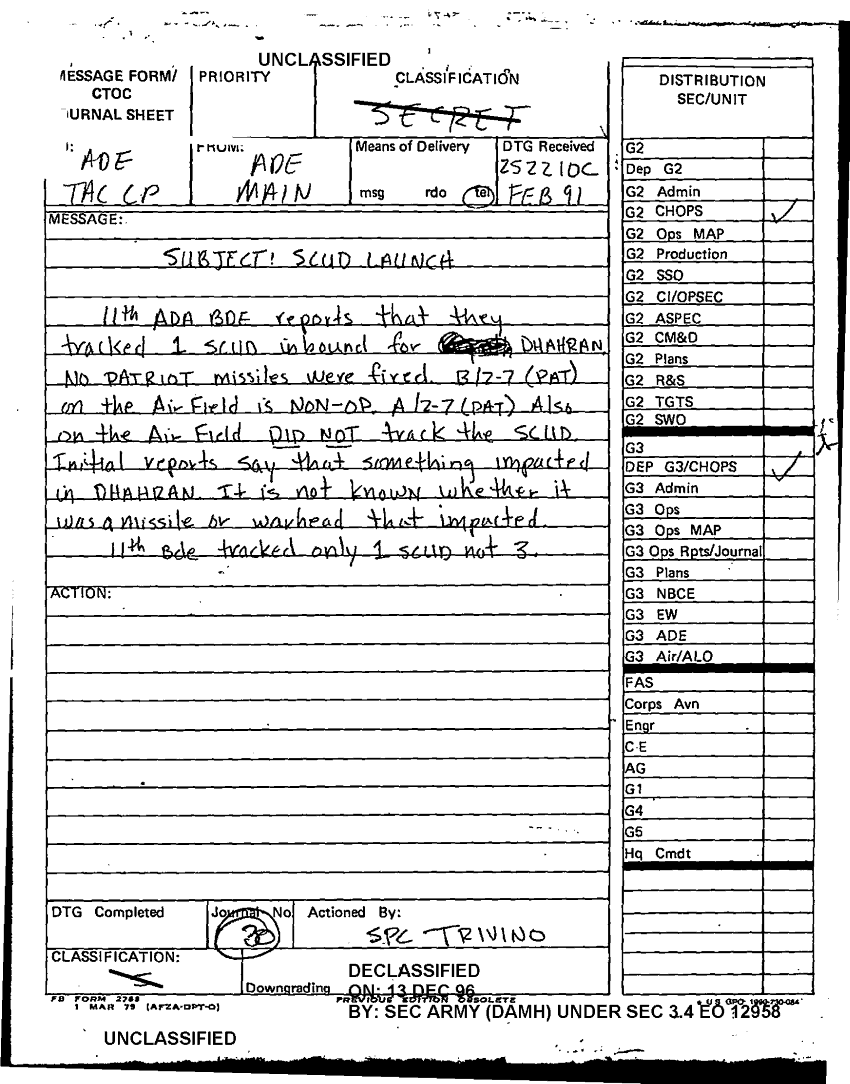 UNCLASSIFIED
MESSAGE FORM/
CTOC
JOURNAL SHEET
PRIORITY
CLASSIFICATION
SECRET
ADE
TAC CP
FROM:
ADE
MAIN
Means of Delivery
msg rdo tel
DTG Received
252210C
FEB 91
MESSAGE:
SUBJECT: SCUD LAUNCH
11th ADA BDE reports that they
tracked 1 SCUD inbound for DHAHRAN.
NO PATRIOT missiles were fired. B/2-7 (PAT)
on the Air Field is NON-OP. A/2-7 (PAT) Also
on the Air Field DID NOT track the SCUD.
Initial reports say that something impacted
in DHAHRAN. It is not known whether it
was a missile or warhead that impacted.
11th Bde tracked only 1 SCUD not 3.
ACTION:
DTG Completed
Journal No.
30
Actioned By:
SPC TRIVINO
CLASSIFICATION:
S
Downgrading
DECLASSIFIED
ON: 13 DEC 96
BY: SEC ARMY (DAMH) UNDER SEC 3.4 EO 12958
FB FORM 2768
1 MAR 79 (AFZA-DPT-O)
PREVIOUS EDITION OBSOLETE
U.S. GPO: 1990-730-084
UNCLASSIFIED
DISTRIBUTION
SEC/UNIT
G2
Dep G2
G2 Admin
G2 CHOPS ✓
G2 Ops MAP
G2 Production
G2 SSO
G2 CI/OPSEC
G2 ASPEC
G2 CM&D
G2 Plans
G2 R&S
G2 TGTS
G2 SWO
G3
DEP G3/CHOPS ✓
G3 Admin
G3 Ops
G3 Ops MAP
G3 Ops Rpts/Journal
G3 Plans
G3 NBCE
G3 EW
G3 ADE
G3 Air/ALO
FAS
Corps Avn
Engr
C-E
AG
G1
G4
G5
Hq Cmdt